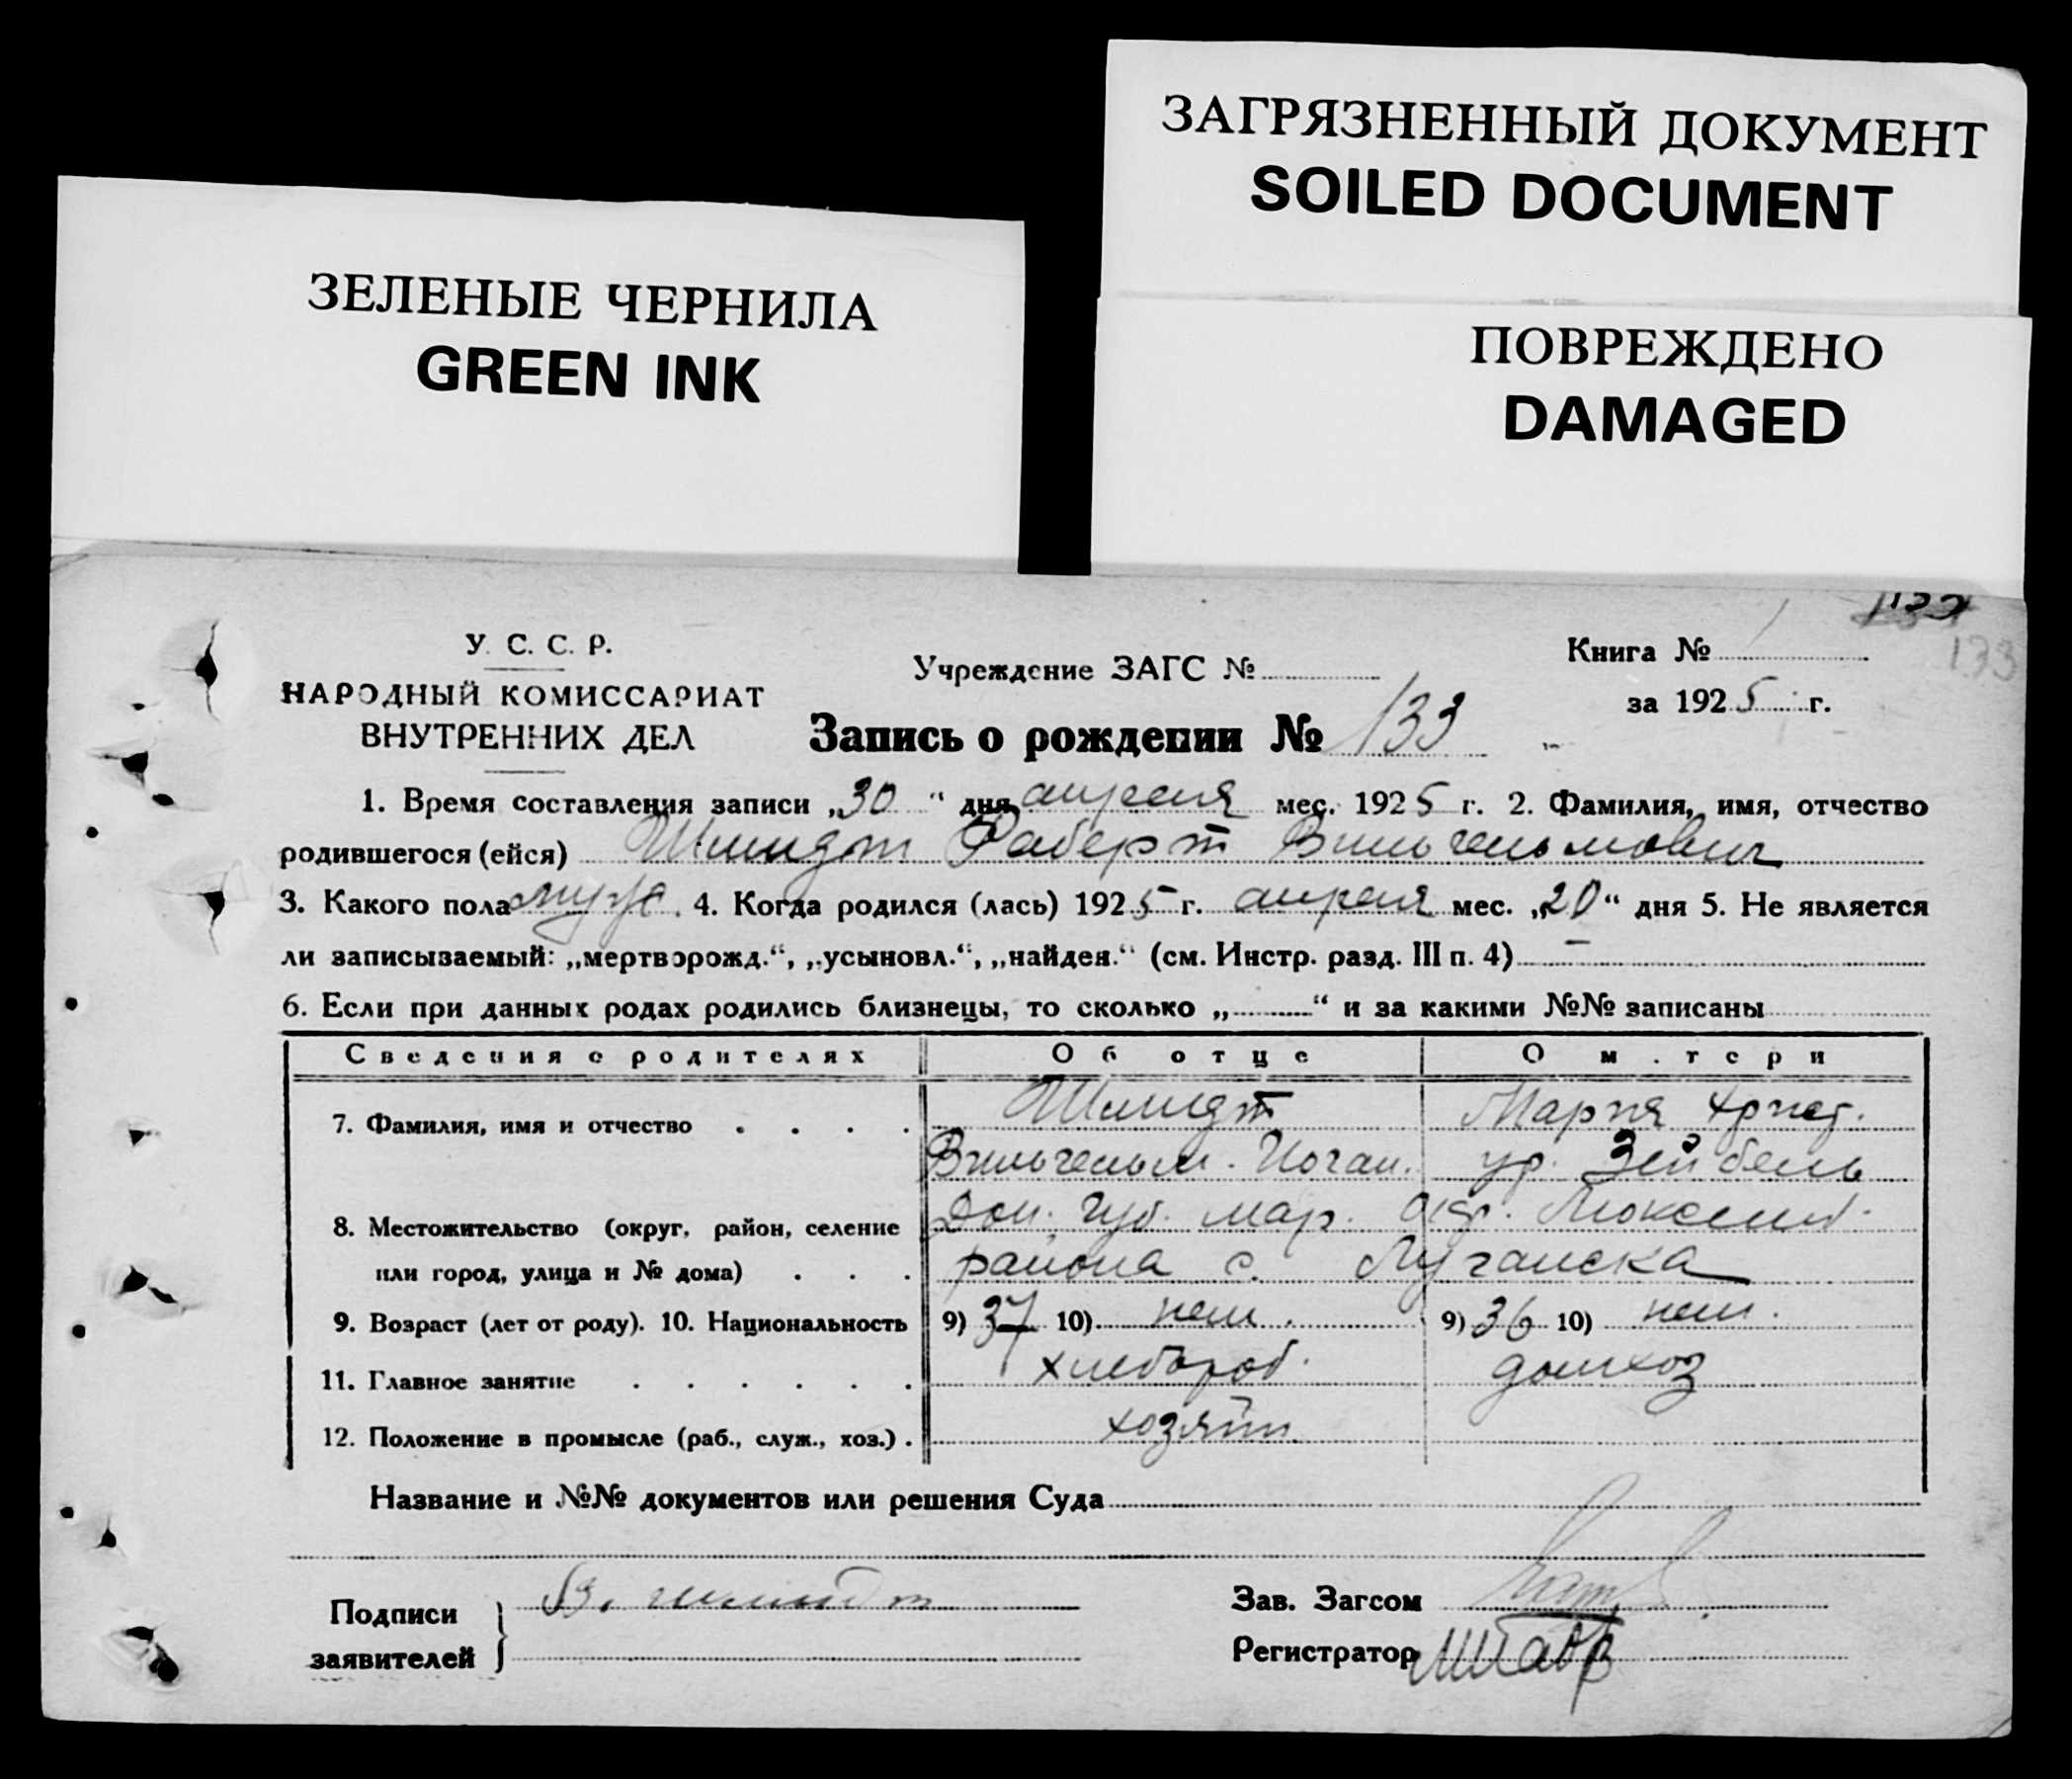 ЗАГРЯЗНЕННЫЙ ДОКУМЕНТ
SOILED DOCUMENT
ЗЕЛЕНЫЕ ЧЕРНИЛА
GREEN INK
ПОВРЕЖДЕНО
DAMAGED
133
У. С. С. Р.
НАРОДНЫЙ КОМИССАРИАТ
ВНУТРЕННИХ ДЕЛ
Учреждение ЗАГС №
Книга № 1
за 1925 г.
Запись о рождении № 133
1. Время составления записи „30“ дня апреля мес. 1925 г. 2. Фамилия, имя, отчество
родившегося (ейся) Шмидт Роберт Вильгельмович
3. Какого пола муж. 4. Когда родился (лась) 1925 г. апреля мес. „20“ дня 5. Не является
ли записываемый: „мертворожд.“, „усыновл.“, „найден.“ (см. Инстр. разд. III п. 4) —
6. Если при данных родах родились близнецы, то сколько „..........“ и за какими №№ записаны
Сведения о родителях Об отце О матери
7. Фамилия, имя и отчество . . . . Шмидт Мария Христ.
Вильгельм. Иоган. ур. Зейбель
8. Местожительство (округ, район, селение Дон. Губ. Мар. Окр. Люксемб.
или город, улица и № дома) . . . района с. Луганска
9. Возраст (лет от роду). 10. Национальность 9) 37 10) нем. 9) 36 10) нем.
11. Главное занятие . . . . . . хлебороб. домхоз
12. Положение в промысле (раб., служ., хоз.) . хозяин
Название и №№ документов или решения Суда
Подписи
заявителей
В. Шмидт
Зав. Загсом
Регистратор